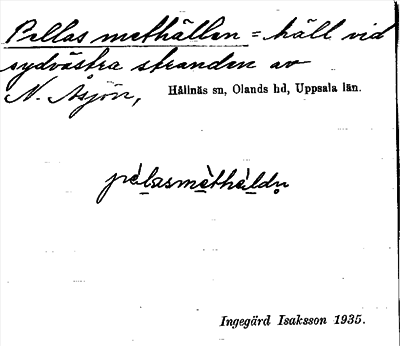 Pellas methällen = häll vid
sydvästra stranden av
N. Åsjön, Hållnäs sn, Olands hd, Uppsala län.
pèlasmèthèldn
Ingegärd Isaksson 1935.